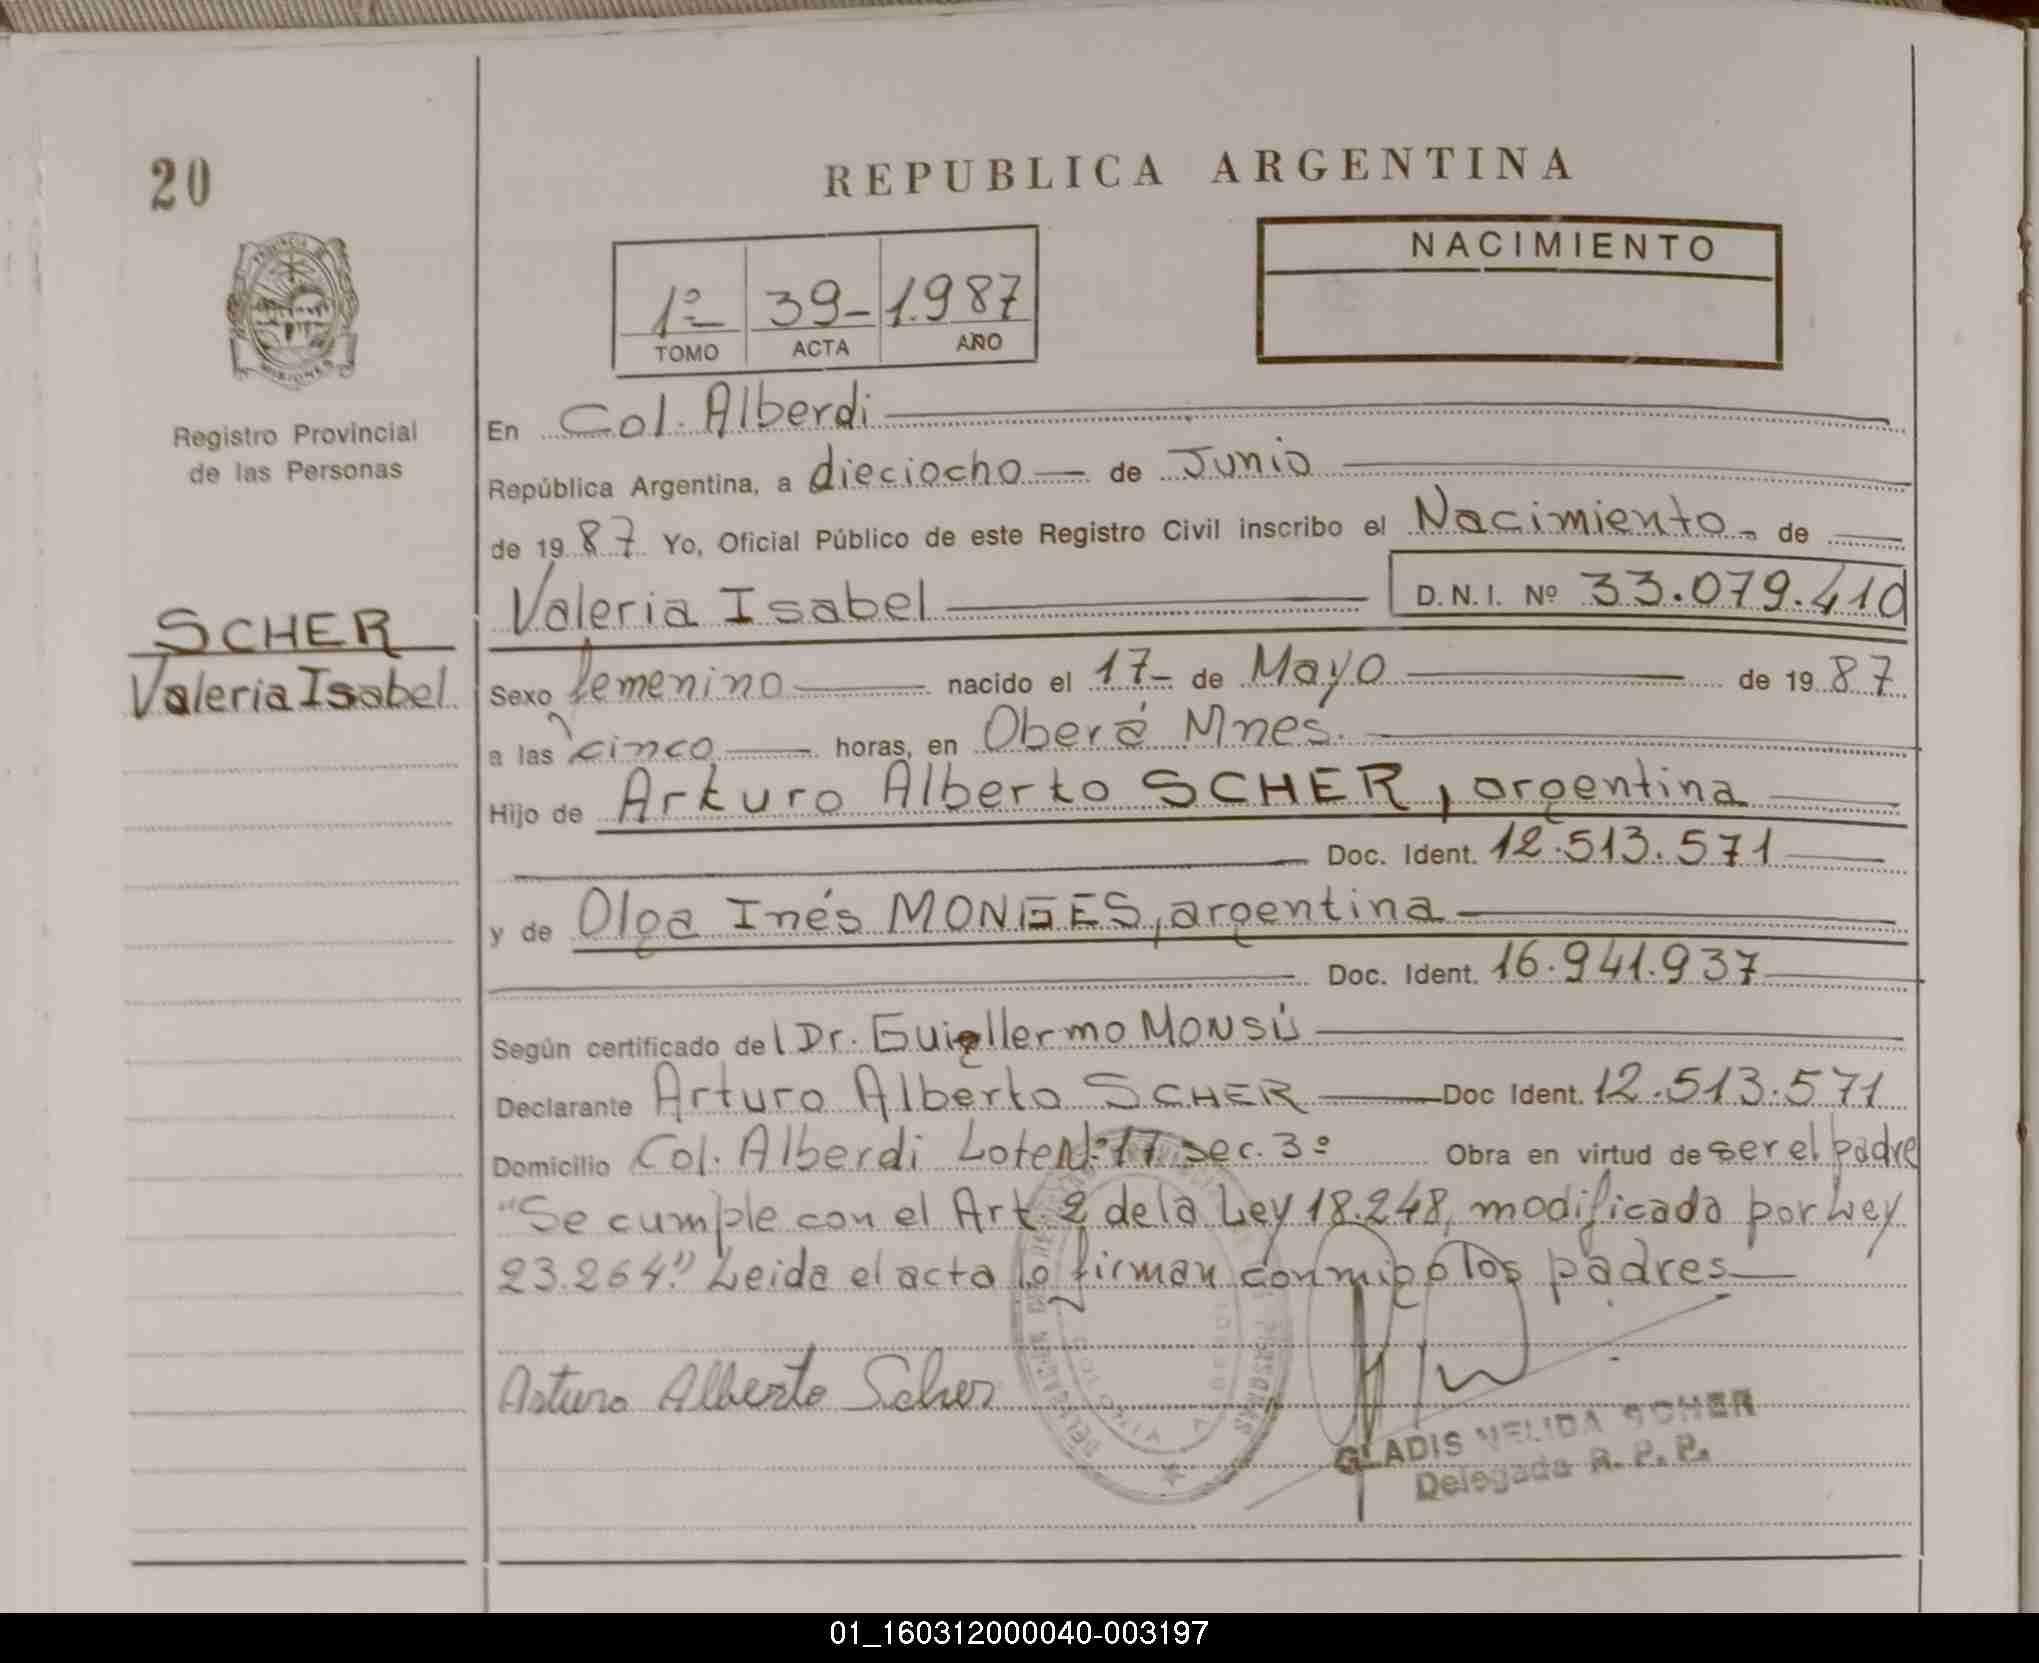 20
REPUBLICA ARGENTINA
NACIMIENTO
1º 39- 1.987
TOMO ACTA AÑO
MISIONES
Registro Provincial
de las Personas
SCHER
Valeria Isabel
En Col. Alberdi
República Argentina, a dieciocho de Junio
de 1987 Yo, Oficial Público de este Registro Civil inscribo el Nacimiento de
Valeria Isabel D.N.I. Nº 33.079.410
Sexo femenino nacido el 17- de Mayo de 1987
a las cinco horas, en Oberá Mnes.
Hijo de Arturo Alberto SCHER, argentina
Doc. Ident. 12.513.571
y de Olga Inés MONGES, argentina
Doc. Ident. 16.941.937
Según certificado del Dr. Guiellermo MONSÚ
Declarante Arturo Alberto SCHER Doc Ident. 12.513.571
Domicilio Col. Alberdi Lote Nº 17 sec. 3º Obra en virtud de ser el padre
"Se cumple con el Art. 2 de la Ley 18.248, modificado por Ley
23.264." Leida el acta lo firman conmigo los padres
Arturo Alberto Scher
GLADIS NELIDA SCHER
Delegada R. P. P.
01_160312000040-003197